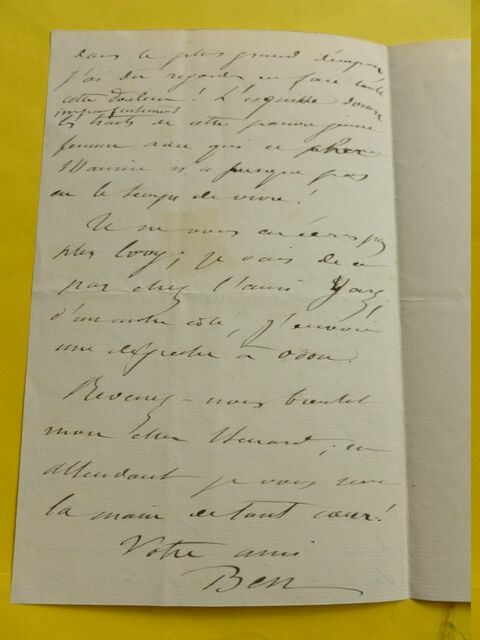 dans le plus grand
j'ai dû regarder en face toute
cette douleur! L'esquisse donne
imparfaitement
les traits de cette pauvre jeune
femme
n'a presque pas
eu le temps de vivre!
Je ne vous en écris pas
plus long; je vais de ce
pas chez l'ami
d'un autre côté, j'envoie
une dépêche à Odon.
Revenez-nous bientôt
mon cher ; en
attendant je vous serre
la main de tout cœur!
Votre ami
Ben